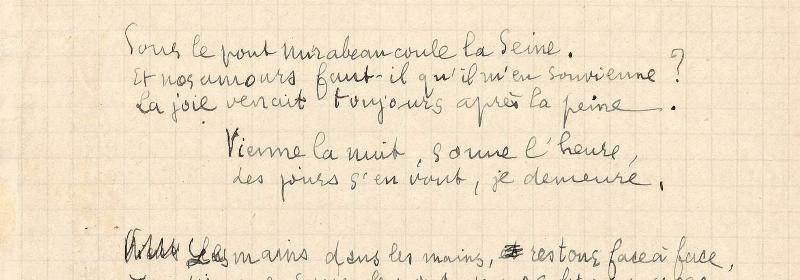 Sous le pont mirabeau coule la Seine.
Et nos amours faut-il qu'il m'en souvienne ?
La joie venait toujours après la peine.
Vienne la nuit, sonne l'heure,
les jours s'en vont, je demeure.
Les mains dans les mains, restons face à face,